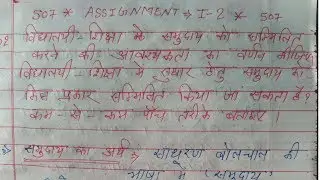 507 * ASSIGNMENT → I-2 * 507
विद्यालयी शिक्षा के समुदाय को सम्मिलित
करने की आवश्यकता का वर्णन कीजिए
विद्यालयी शिक्षा में सुधार हेतु समुदाय को
किस प्रकार सम्मिलित किया जा सकता है?
कम - से - कम पाँच तरीके बताइए।
समुदाय का अर्थ → साधारण बोलचाल की
भाषा में (समुदाय)